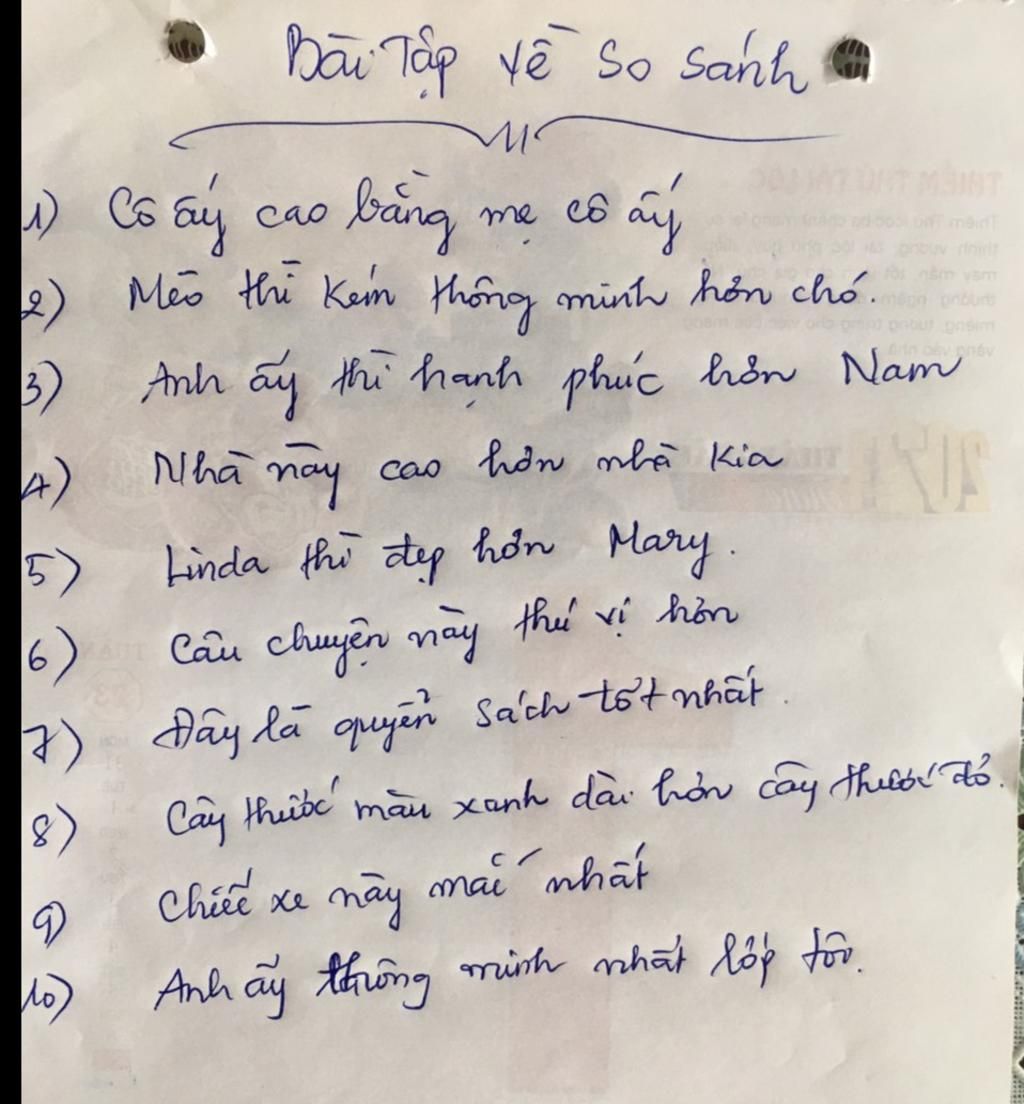 Bài Tập về So sánh
1) Cô ấy cao bằng mẹ cô ấy
2) Mèo thì kém thông minh hơn chó.
3) Anh ấy thì hạnh phúc hơn Nam
4) Nhà này cao hơn nhà kia
5) Linda thì đẹp hơn Mary.
6) Câu chuyện này thú vị hơn
7) Đây là quyển sách tốt nhất.
8) Cây thước màu xanh dài hơn cây thước đỏ.
9) Chiếc xe này mắc nhất
10) Anh ấy thông minh nhất lớp tôi.